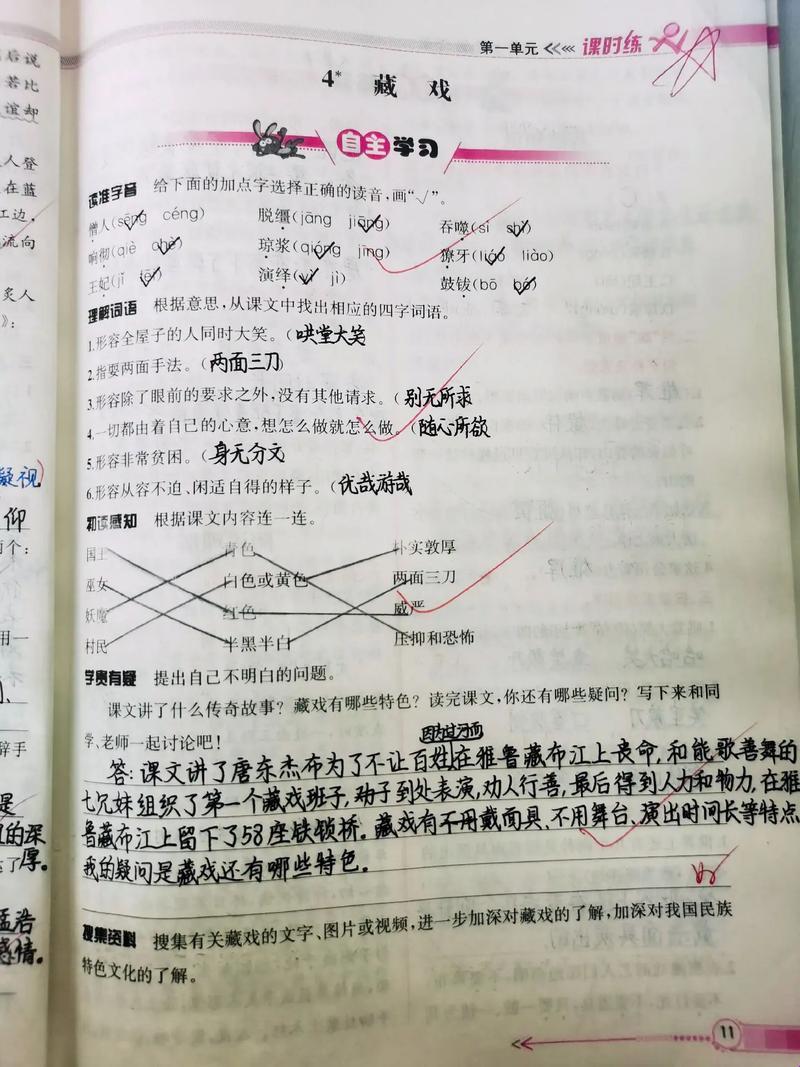 后说
若比
谊却
人登
在蓝
江边,
流向
炙人
》:
凝视)
仰
两个:
用一
辞手
是
的深
厚。
孟浩
感情。
第一单元 课时练
4* 藏 戏
自主学习
读准字音 给下面的加点字选择正确的读音,画“√”。
僧人(sēng céng) 脱缰(jāng jiāng) 吞噬(sì shì)
响彻(qiè chè) 琼浆(qióng jīng) 獠牙(liáo liào)
王妃(jǐ fēi) 演绎(yì jì) 鼓钹(bō bó)
理解词语 根据意思,从课文中找出相应的四字词语。
1.形容全屋子的人同时大笑。(哄堂大笑
2.指耍两面手法。(两面三刀)
3.形容除了眼前的要求之外,没有其他请求。(别无所求
4.一切都由着自己的心意,想怎么做就怎么做。(随心所欲
5.形容非常贫困。(身无分文
6.形容从容不迫、闲适自得的样子。(优哉游哉
初读感知 根据课文内容连一连。
国王 青色 朴实敦厚
巫女 白色或黄色 两面三刀
妖魔 红色 威严
村民 半黑半白 压抑和恐怖
学贵有疑 提出自己不明白的问题。
课文讲了什么传奇故事?藏戏有哪些特色?读完课文,你还有哪些疑问?写下来和同
学、老师一起讨论吧!
因为过河而
答:课文讲了唐东杰布为了不让百姓在雅鲁藏布江上丧命,和能歌善舞的
七兄妹组织了第一个藏戏班子,到处表演,劝人行善,最后得到人力和物力,在雅
鲁藏布江上留下了58座铁锁桥。藏戏有不用戴面具、不用舞台、演出时间长等特点
我的疑问是藏戏还有哪些特色。
搜集资料 搜集有关藏戏的文字、图片或视频,进一步加深对藏戏的了解,加深对我国民族
特色文化的了解。
11